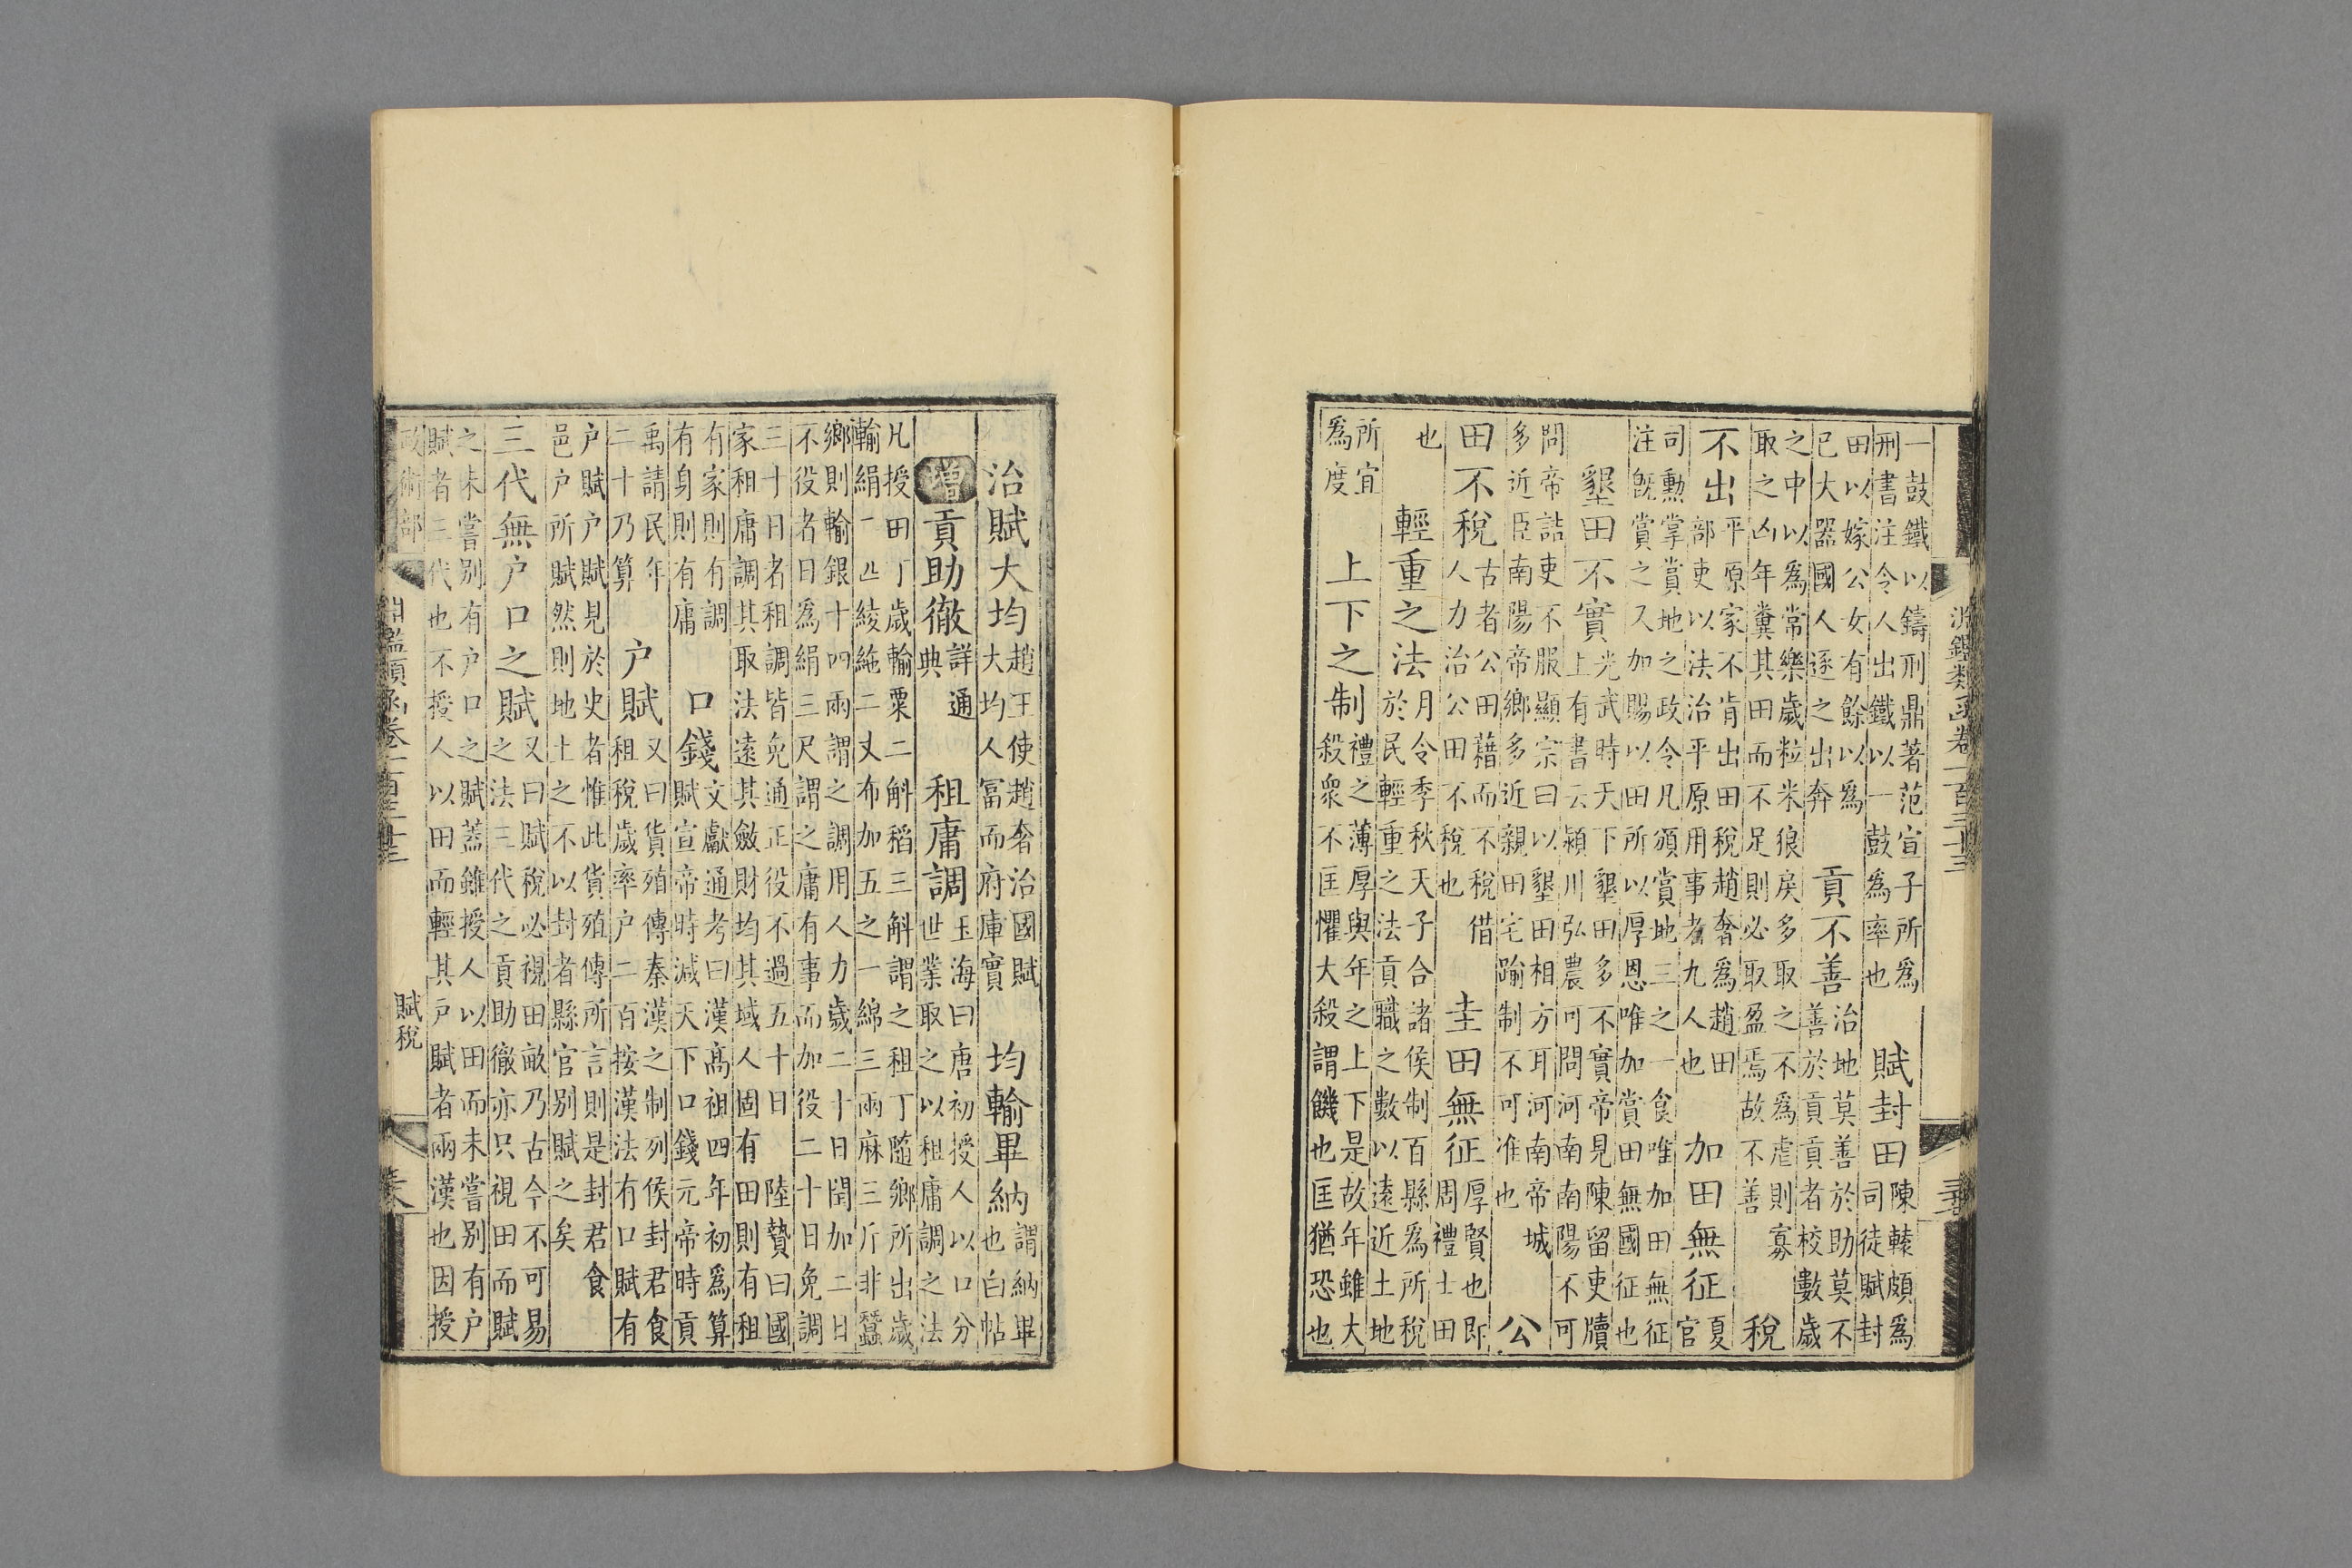 淵鑑類函卷一百三十三
一鼓鐵以鑄刑鼎著范宣子所為刑書注令人出鐵以一鼓為率也 賦封田 陳轅頗為司徒賦封
田以嫁公女有餘以為已大器國人逐之出奔 貢不善 治地莫善於助莫不善於貢貢者校數歲
之中以為常樂歲粒米狼戾多取之不為虐則寡取之凶年糞其田而不足則必取盈焉故不善 稅
不出 平原家不肯出田稅趙奢為趙田部吏以法治平原用事者九人也 加田無征 夏官
司勲掌賞地之政令凡頒賞地三之一食唯加田無征注既賞之又加賜以田所以厚恩唯加賞田無國征也
墾田不實 光武時天下墾田多不實帝見陳留吏牘上有書云潁川弘農可問河南南陽不可
問帝詰吏不服顯宗曰以墾田相方耳河南帝城多近臣南陽帝鄉多近親田宅踰制不可准也 公
田不稅 古者公田藉而不稅借人力治公田不稅也 圭田無征 厚賢也即周禮士田
也 輕重之法 月令季秋天子合諸侯制百縣為所稅於民輕重之法貢職之數以遠近土地
所宜為度 上下之制 禮之薄厚與年之上下是故年雖大殺衆不匡懼大殺謂饑也匡猶恐也
治賦大均 趙王使趙奢治國賦大均人冨而府庫實 均輸畢納 謂納畢也白帖
增 貢助徹 詳通典 租庸調 玉海曰唐初授人以口分世業取之以租庸調之法
凡授田丁歲輸粟二斛稻三斛謂之租丁隨鄉所出歲輸絹一疋綾絁二丈布加五之一綿三兩麻三斤非蠶
鄉則輸銀十四兩謂之調用人力歲二十日閏加二日不役者日為絹三尺謂之庸有事而加役二十日免調
三十日者租調皆免通正役不過五十日 陸贄曰國家租庸調其取法遠其斂財均其域人固有田則有租
有家則有調有身則有庸 口錢 文獻通考曰漢髙祖四年初為算賦宣帝時減天下口錢元帝時貢
禹請民年二十乃算 户賦 又曰貨殖傳秦漢之制列侯封君食租稅歲率户二百按漢法有口賦有
户賦户賦見於史者惟此貨殖傳所言則是封君食邑户所賦然則地土之不以封者縣官别賦之矣
三代無户口之賦 又曰賦稅必視田畝乃古今不可易之法三代之貢助徹亦只視田而賦
之未嘗别有户口之賦葢雖授人以田而未嘗别有户賦者三代也不授人以田而輕其户賦者兩漢也因授
政術部 淵鑑類函卷一百三十三 賦稅